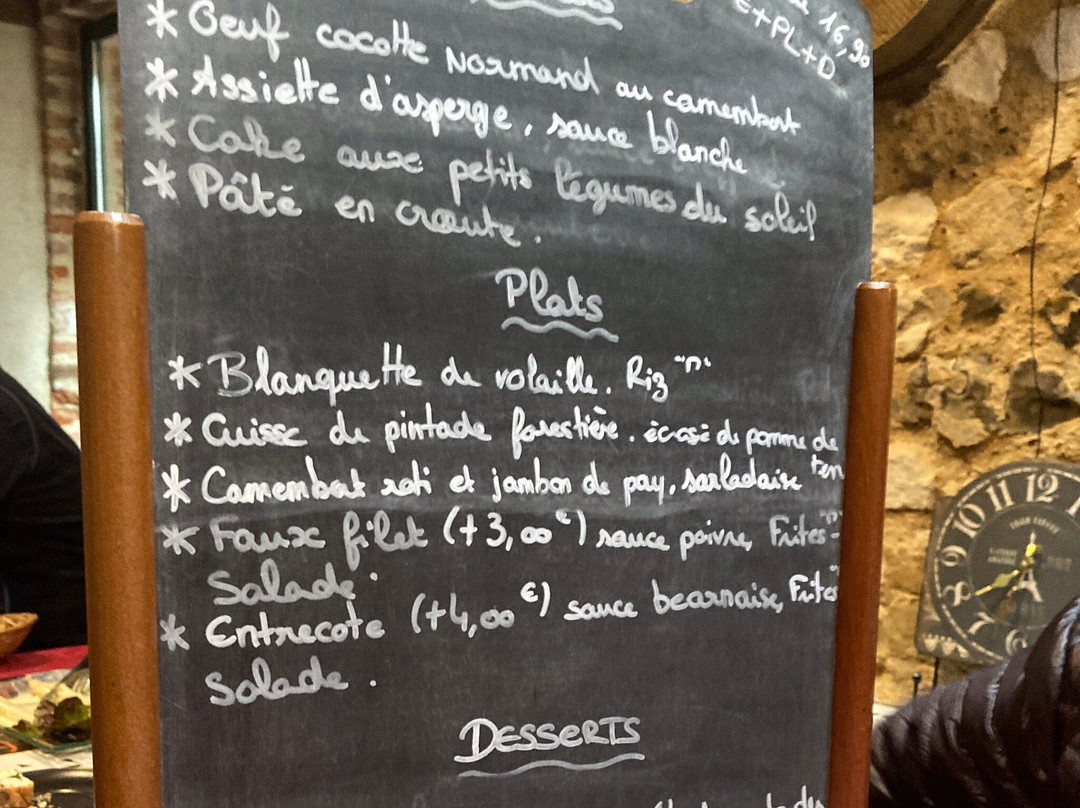 16,90
E+PL+D
* Oeuf cocotte Normand au camembert
* Assiette d'asperge, sauce blanche
* Cake aux petits légumes du soleil
* Pâté en croute.
Plats
* Blanquette de volaille. Riz "n"
* Cuisse de pintade forestière. écrasé de pomme de
terr
* Camembert roti et jambon de pay, sarladaise
* Faux filet (+3,00€) sauce poivre, Frites "n"-
Salade.
* Entrecote (+4,00€) sauce bearnaise, Frites"
Salade.
DESSERTS
12
11
10
9
8
7
6